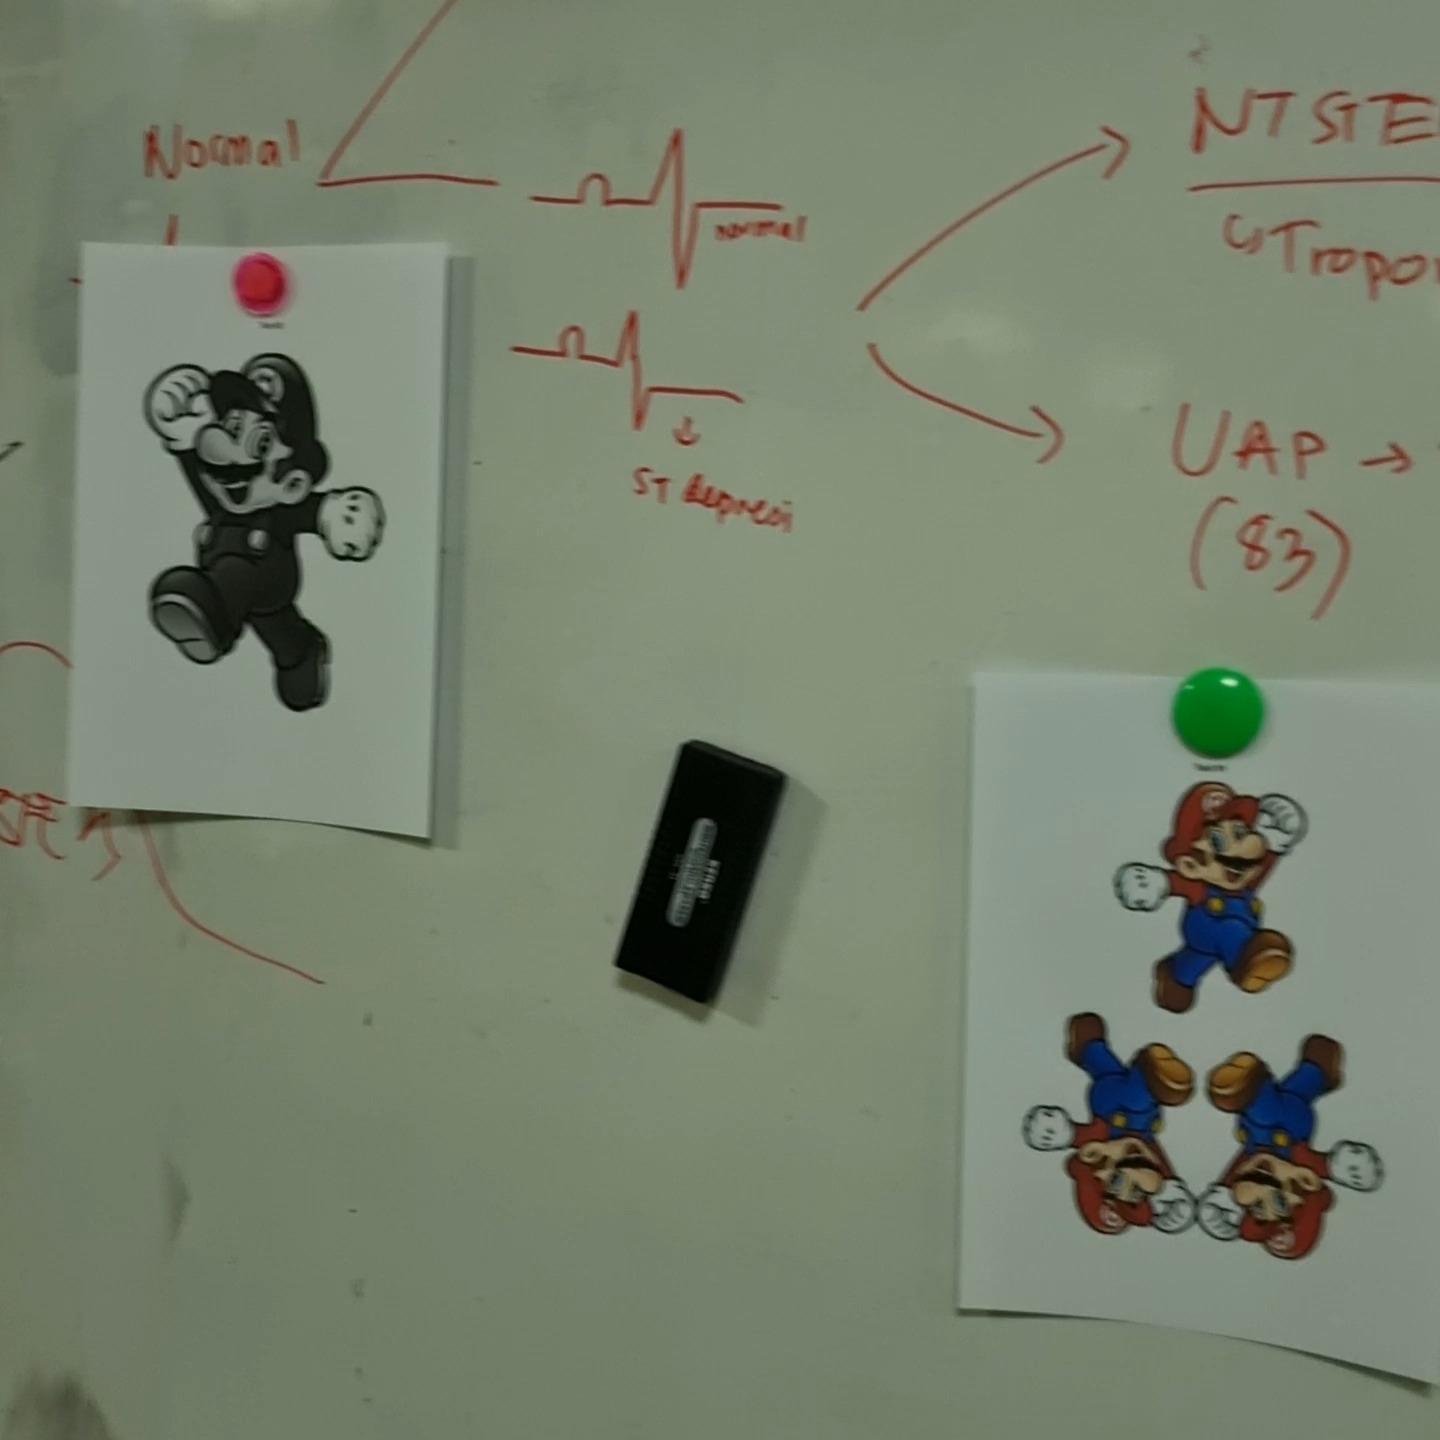 Normal
normal
ST depresi
NTSTE
↳ Tropo
UAP →
(83)